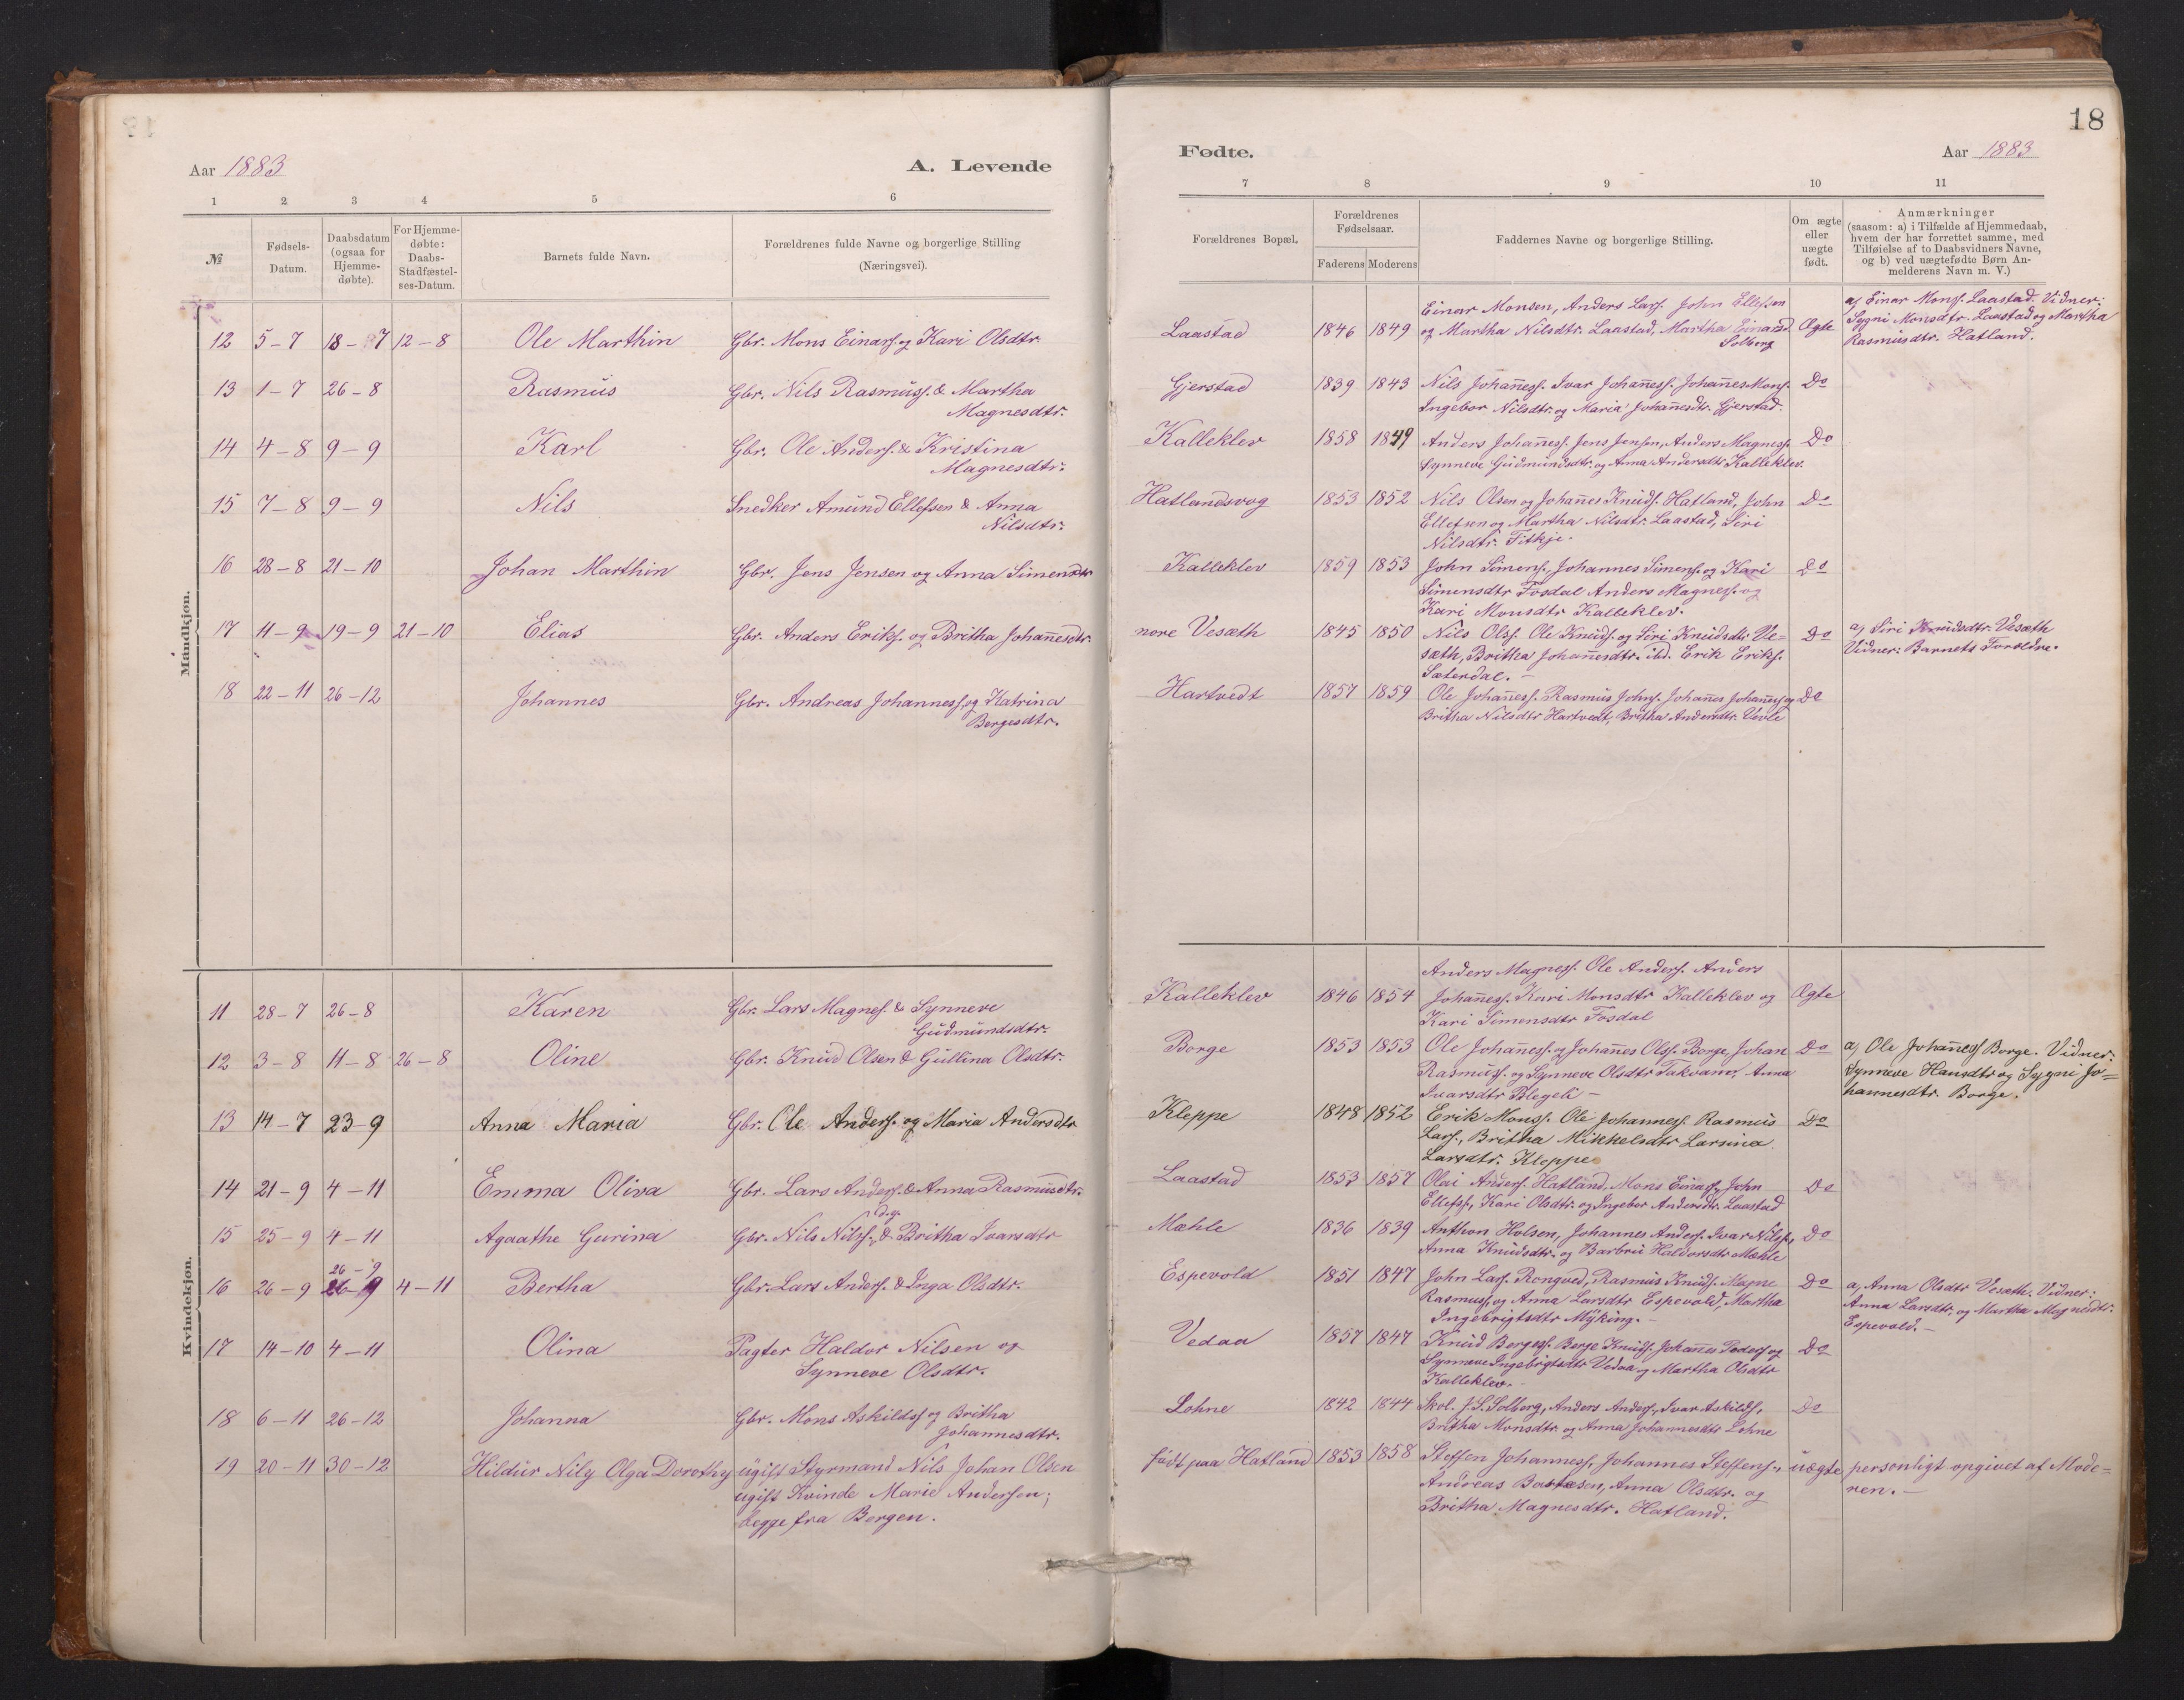 18
Aar 1883
A. Levende
Fødte.
Aar 1883
1 2 3 4 5 6
7 8 9 10 11
№
Fødsels-Datum.
Daabsdatum (ogsaa for Hjemme-døbte).
For Hjemme-døbte: Daabs-Stadfæstel-ses-Datum.
Barnets fulde Navn.
Forældrenes fulde Navne og borgerlige Stilling
(Næringsvei).
Forældrenes Bopæl.
Forældrenes Fødselsaar.
Faderens Moderens
Faddernes Navne og borgerlige Stilling.
Om ægte eller uægte født.
Anmærkninger
(saasom: a) i Tilfælde af Hjemmedaab,
hvem der har forrettet samme, med
Tilføielse af to Daabsvidners Navne,
og b) ved uægtefødte Børn An-
melderens Navn m. V.)
Mandkjøn.
12 5-7 18-7 12-8 Ole Marthin Gbr. Mons Einars. og Kari Olsdtr.
Laastad 1846 1849 Einar Monsen, Anders Lars. John Ellefsen
og Martha Nilsdtr. Laastad, Martha Einarsd.
Solberg
Ægte
a) Einar Mons. Laastad. Vidner:
Sygni Monsdtr. Laastad og Martha
Rasmusdtr. Hatland.
13 1-7 26-8 Rasmus Gbr. Nils Rasmuss. & Martha
Magnesdtr.
Gjerstad 1839 1843 Nils Johaness. Ivar Johaness. Johanes Mons.
Ingebor Nilsdtr. og Maria Johanesdtr. Gjerstad.
Do
14 4-8 9-9 Karl Gbr. Ole Anders. & Kristina
Magnesdtr.
Kalleklev 1858 1849 Anders Johaness. Jens Jensen, Anders Magness.
Synneve Gudmundsdtr. og Anna Andersdtr. Kalleklev.
Do
15 7-8 9-9 Nils Snedker Amund Ellefsen & Anna
Nilsdtr.
Hatlandsvog 1853 1852 Nils Olsen og Johanes Knuds. Hatland, John
Ellefsen og Martha Nilsdtr. Laastad, Siri
Nilsdtr. Fitkje.
Do
16 28-8 21-10 Johan Marthin Gbr. Jens Jensen og Anna Simensdtr
Kalleklev 1859 1853 John Simens., Johannes Simens. og Kari
Simensdtr Fosdal Anders Magnes. og
Kari Monsdtr Kalleklev.
Do
17 11-9 19-9 21-10 Elias Gbr. Anders Eriks. og Britha Johanesdtr.
nore Vesæth 1845 1850 Nils Olss. Ole Knuds. og Siri Knudsdtr. Ve-
sæth, Britha Johanesdtr. ibd. Erik Eriks.
Sæterdal.
Do
a) Siri Knudsdtr. Vesæth
Vidner: Barnets Forældre.
18 22-11 26-12 Johannes Gbr. Andreas Johanness. og Katrina
Bergesdtr.
Hartvedt 1857 1859 Ole Johaness. Rasmus Johns. Johanes Johaness. og
Britha Nilsdtr Hartvedt, Britha Andersdtr.
Do
Kvindekjøn.
11 28-7 26-8 Karen Gbr. Lars Magnes. & Synneve
Gudmundsdtr.
Kalleklev 1846 1854 Anders Magness. Ole Anders. Anders
Johaness. Kari Monsdtr Kalleklev og
Kari Simensdtr Fosdal
Ægte
12 3-8 11-8 26-8 Oline Gbr. Knud Olsen & Gullina Olsdtr.
Borge 1853 1853 Ole Johaness. og Johanes Olss. Borge, Johan
Rasmuss. og Synneve Olsdtr Takvam, Anna
Ivarsdtr Blegeli
Do
a) Ole Johaness Borge. Vidner:
Synneve Hansdtr og Sygni Jo-
hannesdtr. Borge.
13 14-7 23-9 Anna Maria Gbr. Ole Anders. og Maria Andersdtr
Kleppe 1848 1852 Erik Mons. Ole Johanness. Rasmus
Lars., Britha Mikkelsdtr Larsina
Larsdtr. Kleppe
Do
14 21-9 4-11 Emma Oliva Gbr. Lars Anders. & Anna Rasmusdtr.
Laastad 1853 1857 Olai Anders. Hatland. Mons Einars, John
Ellefss., Kari Olsdtr. og Ingebor Andersdtr. Laastad
Do
15 25-9 4-11 Agaathe Gurina Gbr. Nils Nilss. d.y. & Britha Ivarsdtr
Mæhle 1836 1839 Anthon Holsen, Johannes Anders. Ivar Nilss.,
Anna Knudsdtr. og Barbru Haldorsdtr Mæhle
Do
16 26-9 26-9 4-11 Bertha Gbr. Lars Anders. & Inga Olsdtr.
Espevold 1851 1847 John Lars. Rongved, Rasmus Knuds. Magne
Rasmuss. og Anna Larsdtr Espevold, Martha
Ingebrigtsdtr Myking.
Do
a, Anna Olsdtr Vesæth. Vidner:
Anna Larsdtr. og Martha Magnesdtr.
Espevold.
17 14-10 4-11 Olina Pagter Haldor Nilsen og
Synneve Olsdtr.
Vedaa 1857 1847 Knud Bergess. Berge Knuds. Johanes Peders. og
Synneve Ingebrigtsdtr Vedaa og Martha Olsdtr
Kalleklev.
Do
18 6-11 26-12 Johanna Gbr. Mons Askilds. og Britha
Johannesdtr.
Lohne 1842 1844 Skol. J. S. Solberg, Anders Anders., Ivar Askilds.,
Britha Monsdtr. og Anna Johannesdtr Lohne
Do
19 20-11 30-12 Hildur Nily Olga Dorothy ugift Styrmand Nils Johan Olsen
ugift Kvinde Marie Andersen;
begge fra Bergen.
født paa Hatland 1853 1858 Steffen Johanness., Johannes Steffens.,
Andreas Bastesen, Anna Olsdtr. og
Britha Magnesdtr. Hatland.
uægte
personligt opgivet af Mode-
ren.